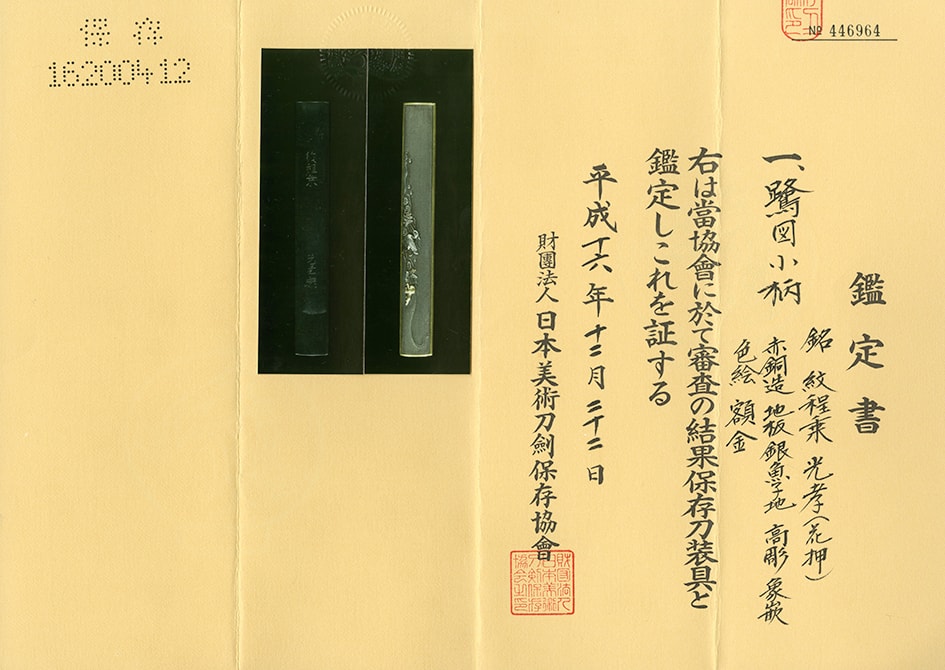 No 446964
鑑定書
一、鷺図小柄
銘 紋程乗 光孝(花押)
赤銅造 地板銀魚子地 高彫 象嵌
色絵 額金
右は當協會に於て審査の結果保存刀装具と
鑑定しこれを証する
平成十六年十二月二十二日
財團法人 日本美術刀劍保存協會
財團法人日本美術刀剣保存協会之印
保存
16200412
紋程乗